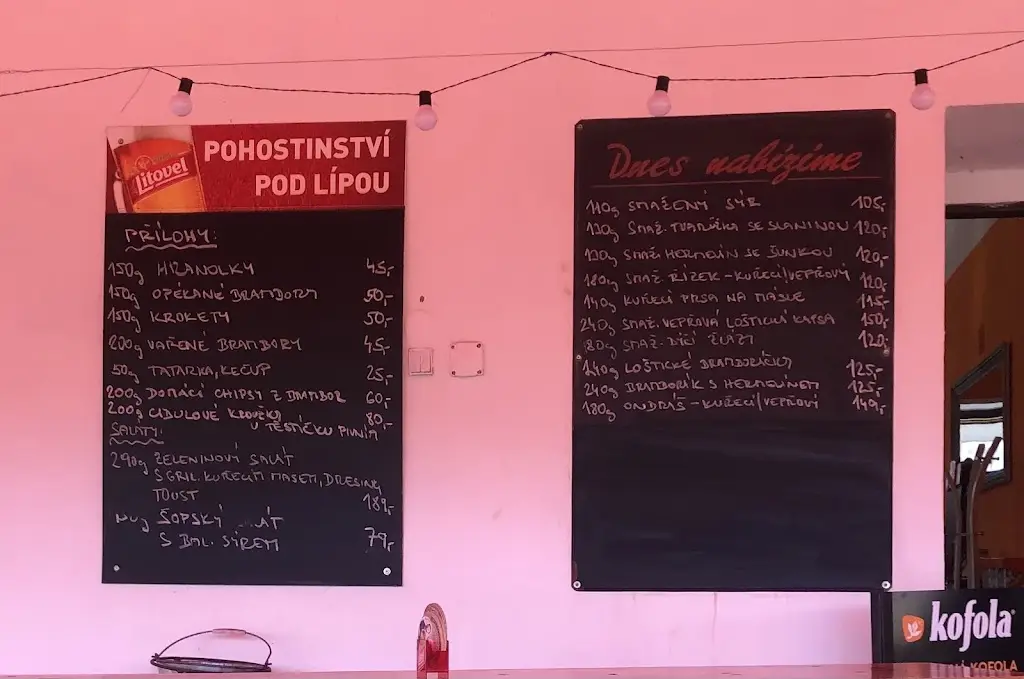 Litovel
POHOSTINSTVÍ
POD LÍPOU
PŘÍLOHY:
150g HRANOLKY 45,-
150g OPÉKANÉ BRAMBORY 50,-
150g KROKETY 50,-
200g VAŘENÉ BRAMBORY 45,-
50g TATARKA, KEČUP 25,-
200g DOMÁCÍ CHIPSY Z BRAMBOR 60,-
200g CIBULOVÉ KROUŽKY 80,-
V TĚSTÍČKU PIVNÍM
SALÁTY:
290g ZELENINOVÝ SALÁT
S GRIL. KUŘECÍM MASEM, DRESING
TOUST 189,-
ŠOPSKÝ
S BAL. SÝREM 79,-
Dnes nabízíme
110g SMAŽENÝ SÝR 105,-
130g SMAŽ. TVARŮŽKY SE SLANINOU 120,-
SMAŽ. HERMELÍN SE ŠUNKOU 120,-
180g SMAŽ. ŘÍZEK - KUŘECÍ/VEPŘOVÝ 120,-
140g KUŘECÍ PRSA NA MÁSLE 115,-
240g SMAŽ. VEPŘOVÁ LOŠTICKÁ KAPSA 150,-
80g SMAŽ. 120,-
140g LOŠTICKÉ BRAMBORÁČKY 125,-
240g BRAMBORÁK S HERMELÍNEM 125,-
180g ONDRÁŠ - KUŘECÍ/VEPŘOVÝ 149,-
kofola
KOFOLA